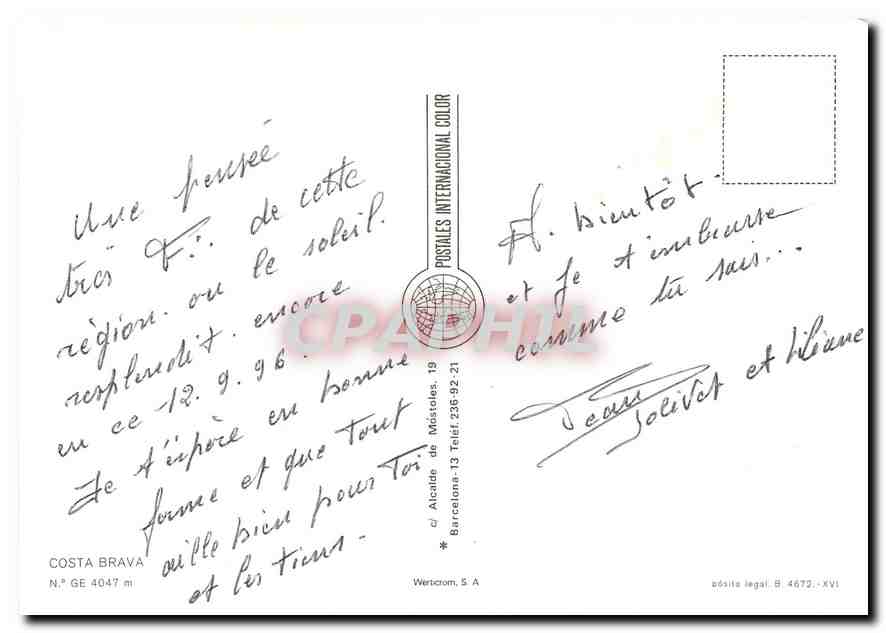 Une pensée
très F∴ de cette
région. ou le soleil.
resplendit. encore
en ce 12.9.96.
Je t'espère en bonne
forme et que tout
aille bien pour Toi
et les tiens.
COSTA BRAVA
N.º GE 4047 m
POSTALES INTERNACIONAL COLOR
* c/ Alcalde de Móstoles, 19
Barcelona-13 Teléf. 236-92-21
Werticrom, S. A
A. bientôt.
et Je t'embrasse
comme tu sais...
Jean
Jolivet et Liliane
pósito legal. B. 4672.-XVI
CPAPHIL